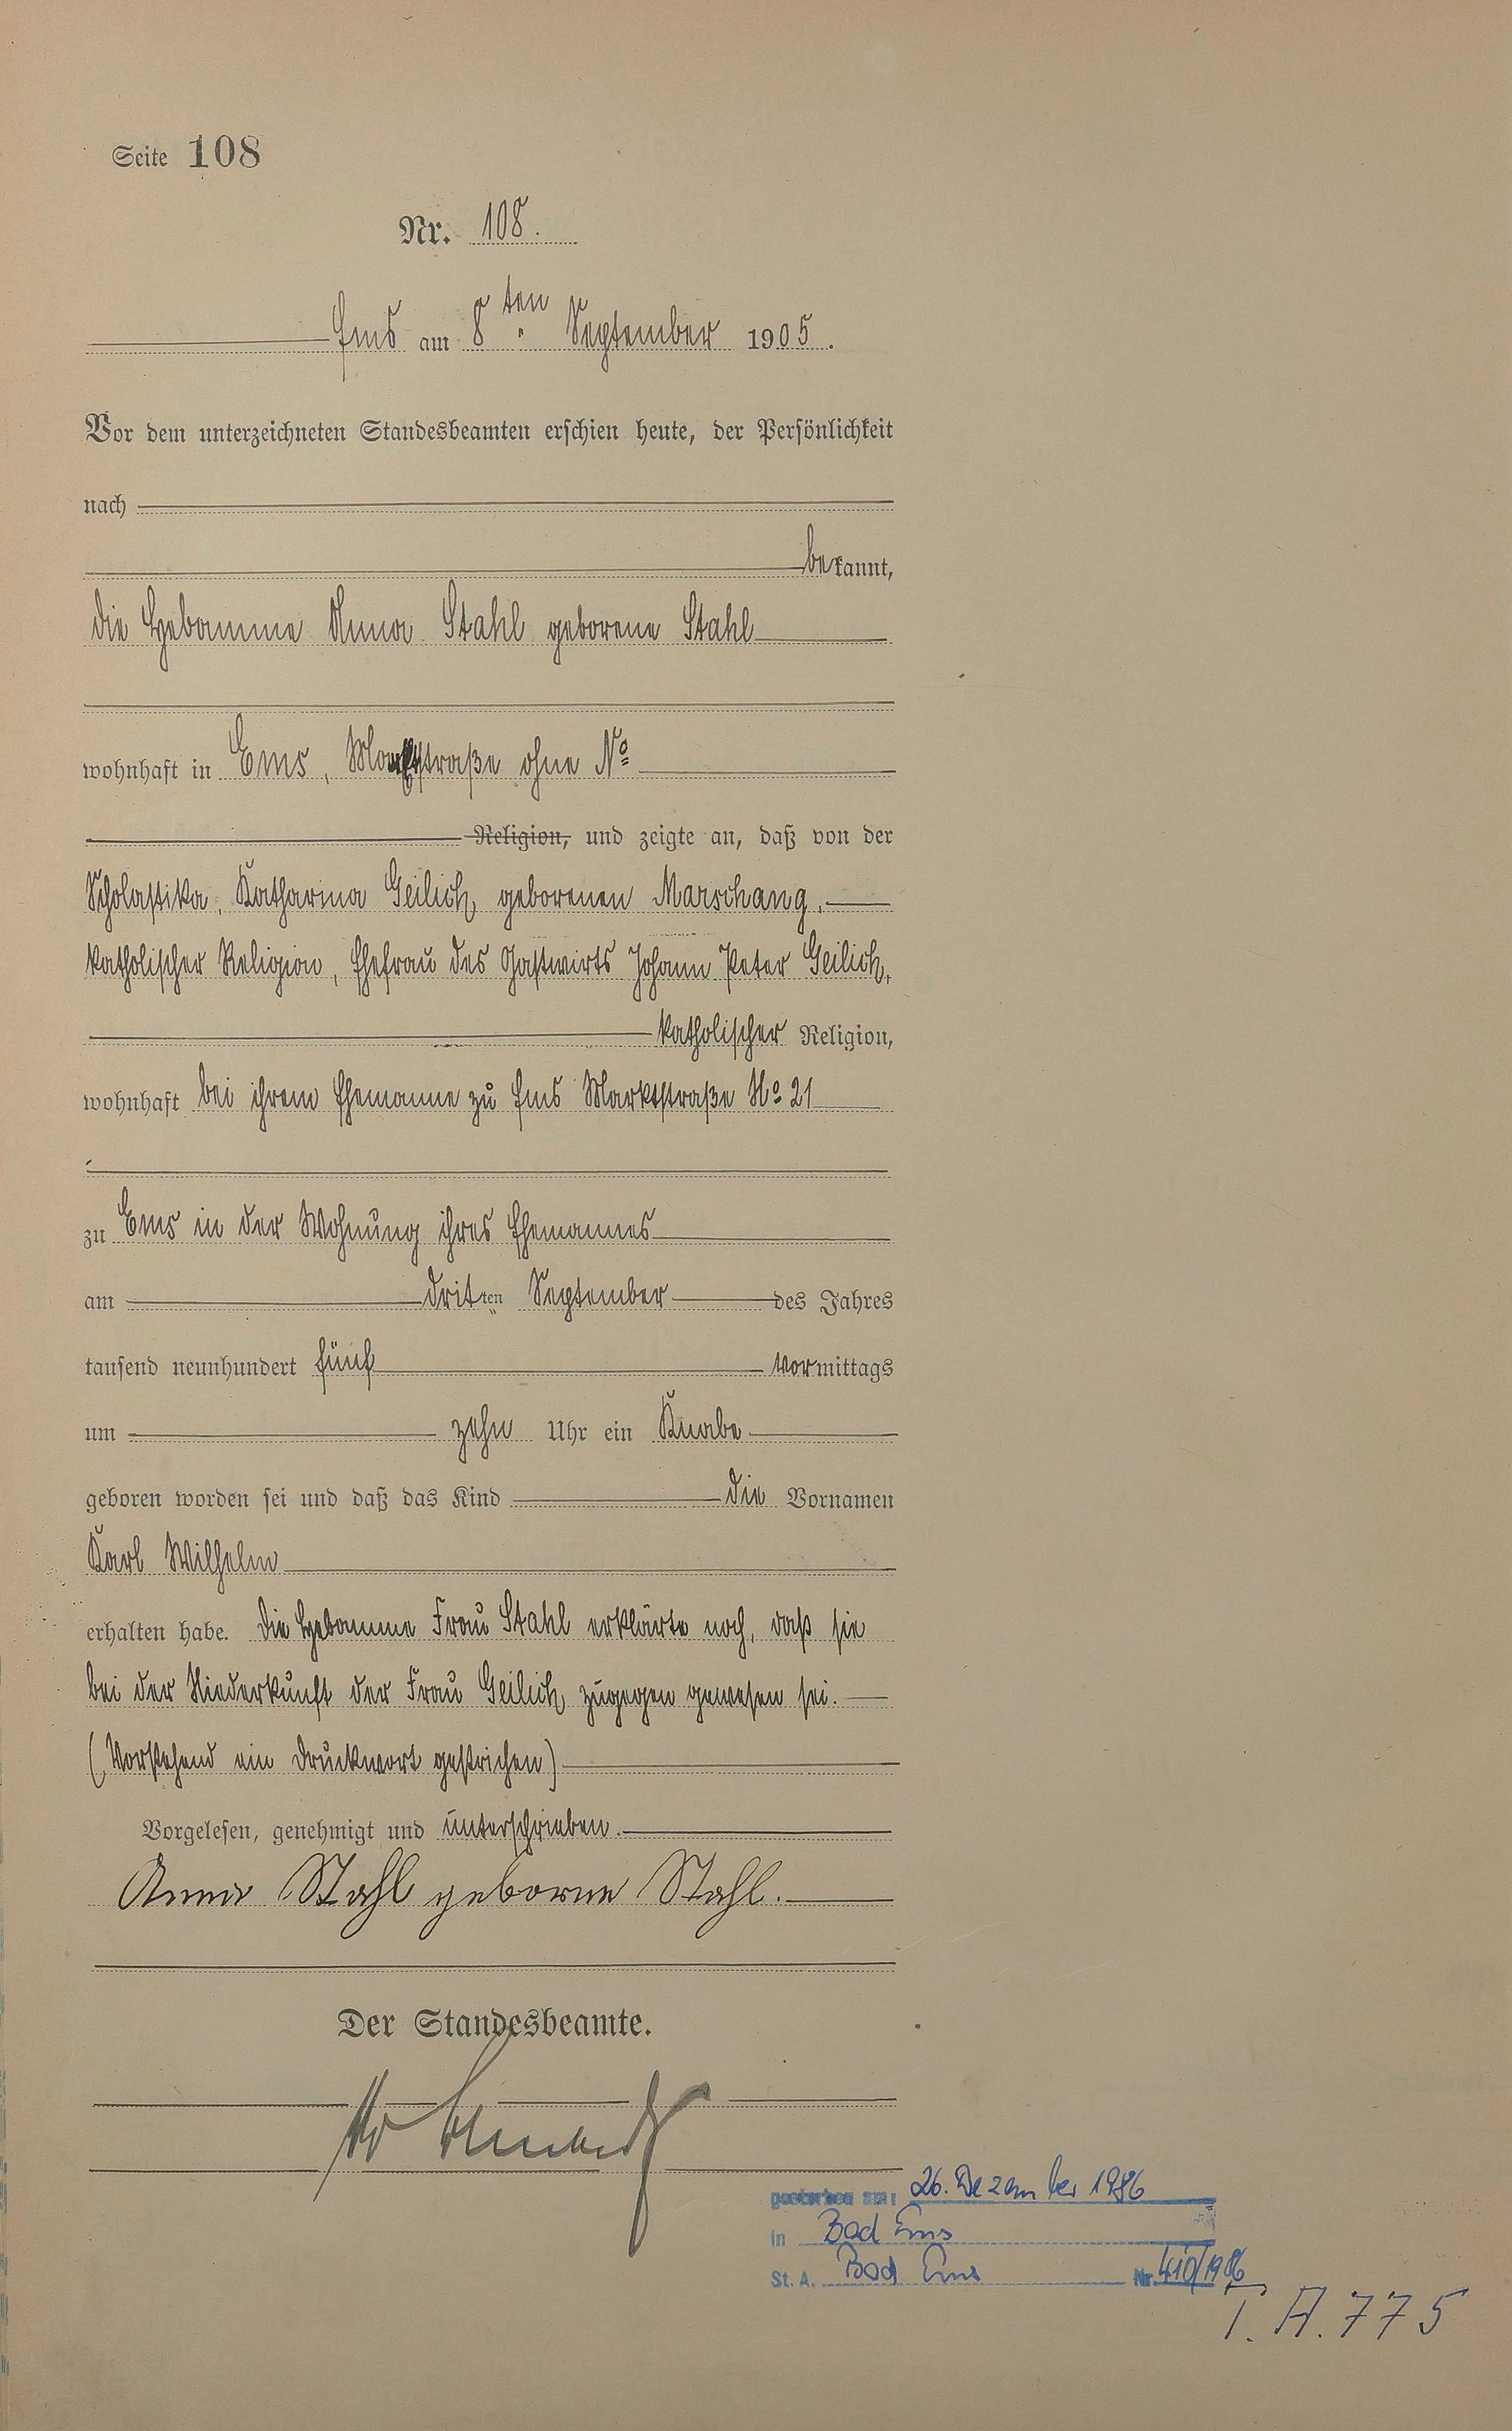 Seite 108
Nr. 108.
Ems am 8ten September 1905.
Vor dem unterzeichneten Standesbeamten erschien heute, der Persönlichkeit
nach
bekannt,
die Hebamme Anna Stahl geborene Stahl
wohnhaft in Ems, Marktstraße ohne No
Religion, und zeigte an, daß von der
Scholastika, Katharina Geilich, geborenen Marschang,
katholischer Religion, Ehefrau des Gastwirts Johann Peter Geilich,
katholischer Religion,
wohnhaft bei ihrem Ehemanne zu Ems Marktstraße No 21
zu Ems in der Wohnung ihres Ehemannes
am dritten September des Jahres
tausend neunhundert fünf vormittags
um zehn Uhr ein Knabe
geboren worden sei und daß das Kind die Vornamen
Karl Wilhelm
erhalten habe. Die Hebamme Frau Stahl erklärte noch, daß sie
bei der Niederkunft der Frau Geilich zugegen gewesen sei.
(Vorstehend ein Druckwort gestrichen)
Vorgelesen, genehmigt und unterschrieben.
Anna Stahl geborne Stahl.
Der Standesbeamte.
gestorben am: 26. Dezember 1986
in Bad Ems
St. A. Bad Ems Nr. 410/1986
T. A. 775